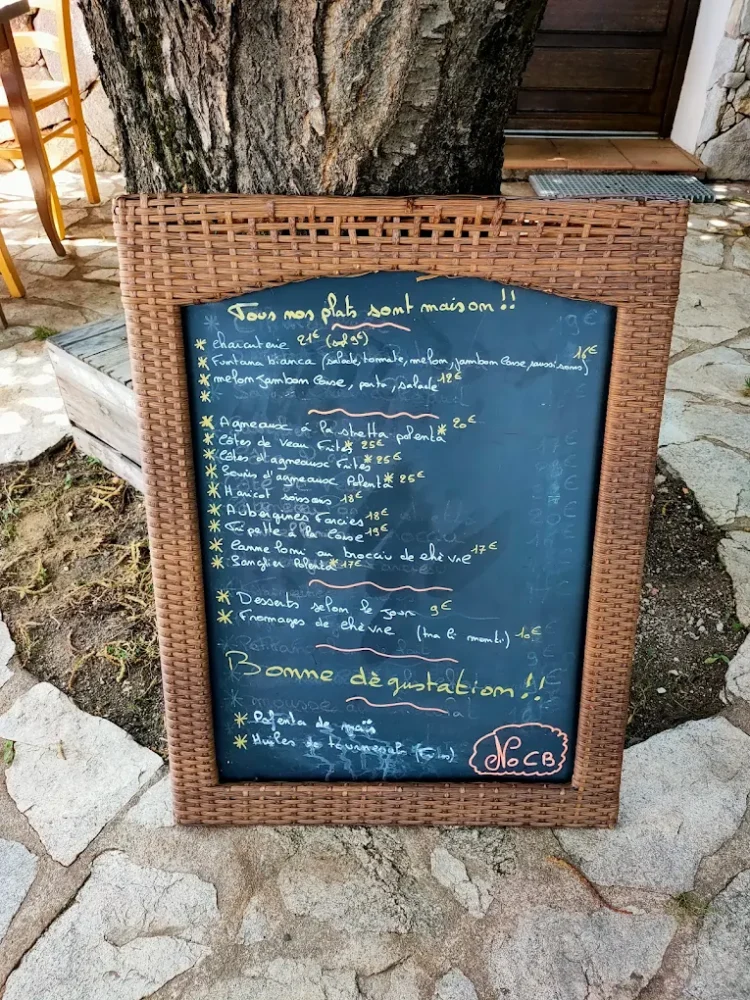 Tous nos plats sont maison !!
* charcuterie 21€ (sol 9€)
* Funtana bianca (salade, tomate, melon, jambon Corse, saussissons) 16€
* melon jambon Corse, porto, salade 12€
*
* Agneaux à la stretta polenta* 20€
* Côtes de Veau Frites* 25€
* Côtes d'agneaux Frites* 25€
* Souris d'agneaux Polenta* 25€
* Haricot soissons 18€
* Aubergines Farcies 18€
* Tripette à la Corse 19€
* Canneloni au brocciu de chèvre 17€
* Sanglier Polenta* 17€
* Desserts selon le jour 9€
* Fromages de chèvre 10€
Bonne dégustation !!
* Polenta de maïs
* Huiles de tournesols
No CB